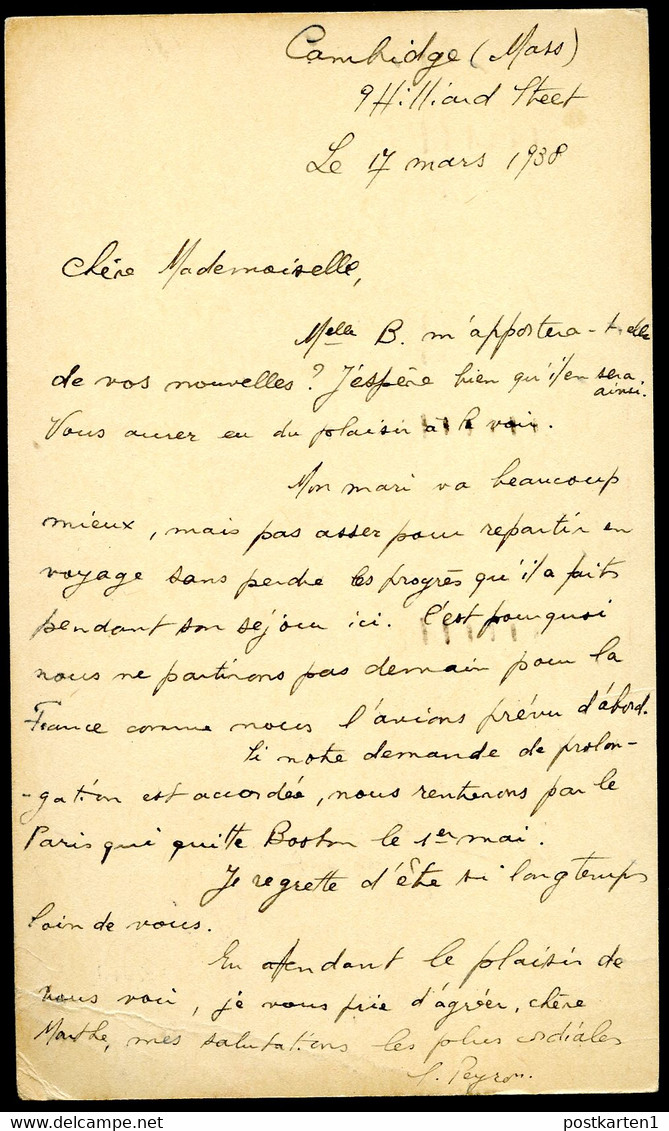 Cambridge (Mass)
9 Hilliard Street
Le 17 mars 1938
Chère Mademoiselle,
Melle B. m'apportera-t-elle
de vos nouvelles ? J'espère bien qu'il en sera
ainsi.
Vous aurez eu du plaisir à la voir.
Mon mari va beaucoup
mieux, mais pas assez pour repartir en
voyage sans perdre les progrès qu'il a faits
pendant son séjour ici. C'est pourquoi
nous ne partirons pas demain pour la
France comme nous l'avions prévu d'abord.
Si notre demande de prolon-
-gation est accordée, nous rentrerons par le
Paris qui quitte Boston le 1er mai.
Je regrette d'être si longtemps
loin de vous.
En attendant le plaisir de
vous voir, je vous prie d'agréer, chère
Marthe, mes salutations les plus cordiales
Peyron.
postkarten1